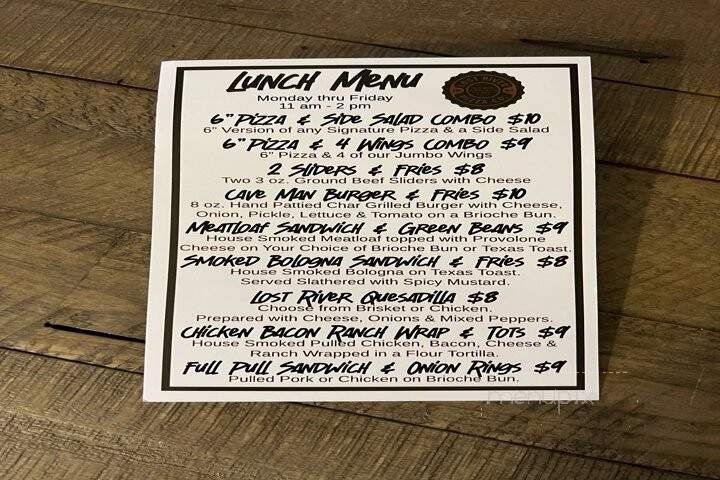 Lunch Menu
Monday thru Friday
11 am - 2 pm
6" Pizza & Side Salad Combo $10
6" Version of any Signature Pizza & a Side Salad
6" Pizza & 4 Wings Combo $9
6" Pizza & 4 of our Jumbo Wings
2 Sliders & Fries $8
Two 3 oz. Ground Beef Sliders with Cheese
Cave Man Burger & Fries $10
8 oz. Hand Pattied Char Grilled Burger with Cheese,
Onion, Pickle, Lettuce & Tomato on a Brioche Bun.
Meatloaf Sandwich & Green Beans $9
House Smoked Meatloaf topped with Provolone
Cheese on Your Choice of Brioche Bun or Texas Toast.
Smoked Bologna Sandwich & Fries $8
House Smoked Bologna on Texas Toast.
Served Slathered with Spicy Mustard.
Lost River Quesadilla $8
Choose from Brisket or Chicken.
Prepared with Cheese, Onions & Mixed Peppers.
Chicken Bacon Ranch Wrap & Tots $9
House Smoked Pulled Chicken, Bacon, Cheese &
Ranch Wrapped in a Flour Tortilla.
Full Pull Sandwich & Onion Rings $9
Pulled Pork or Chicken on Brioche Bun.
menupix